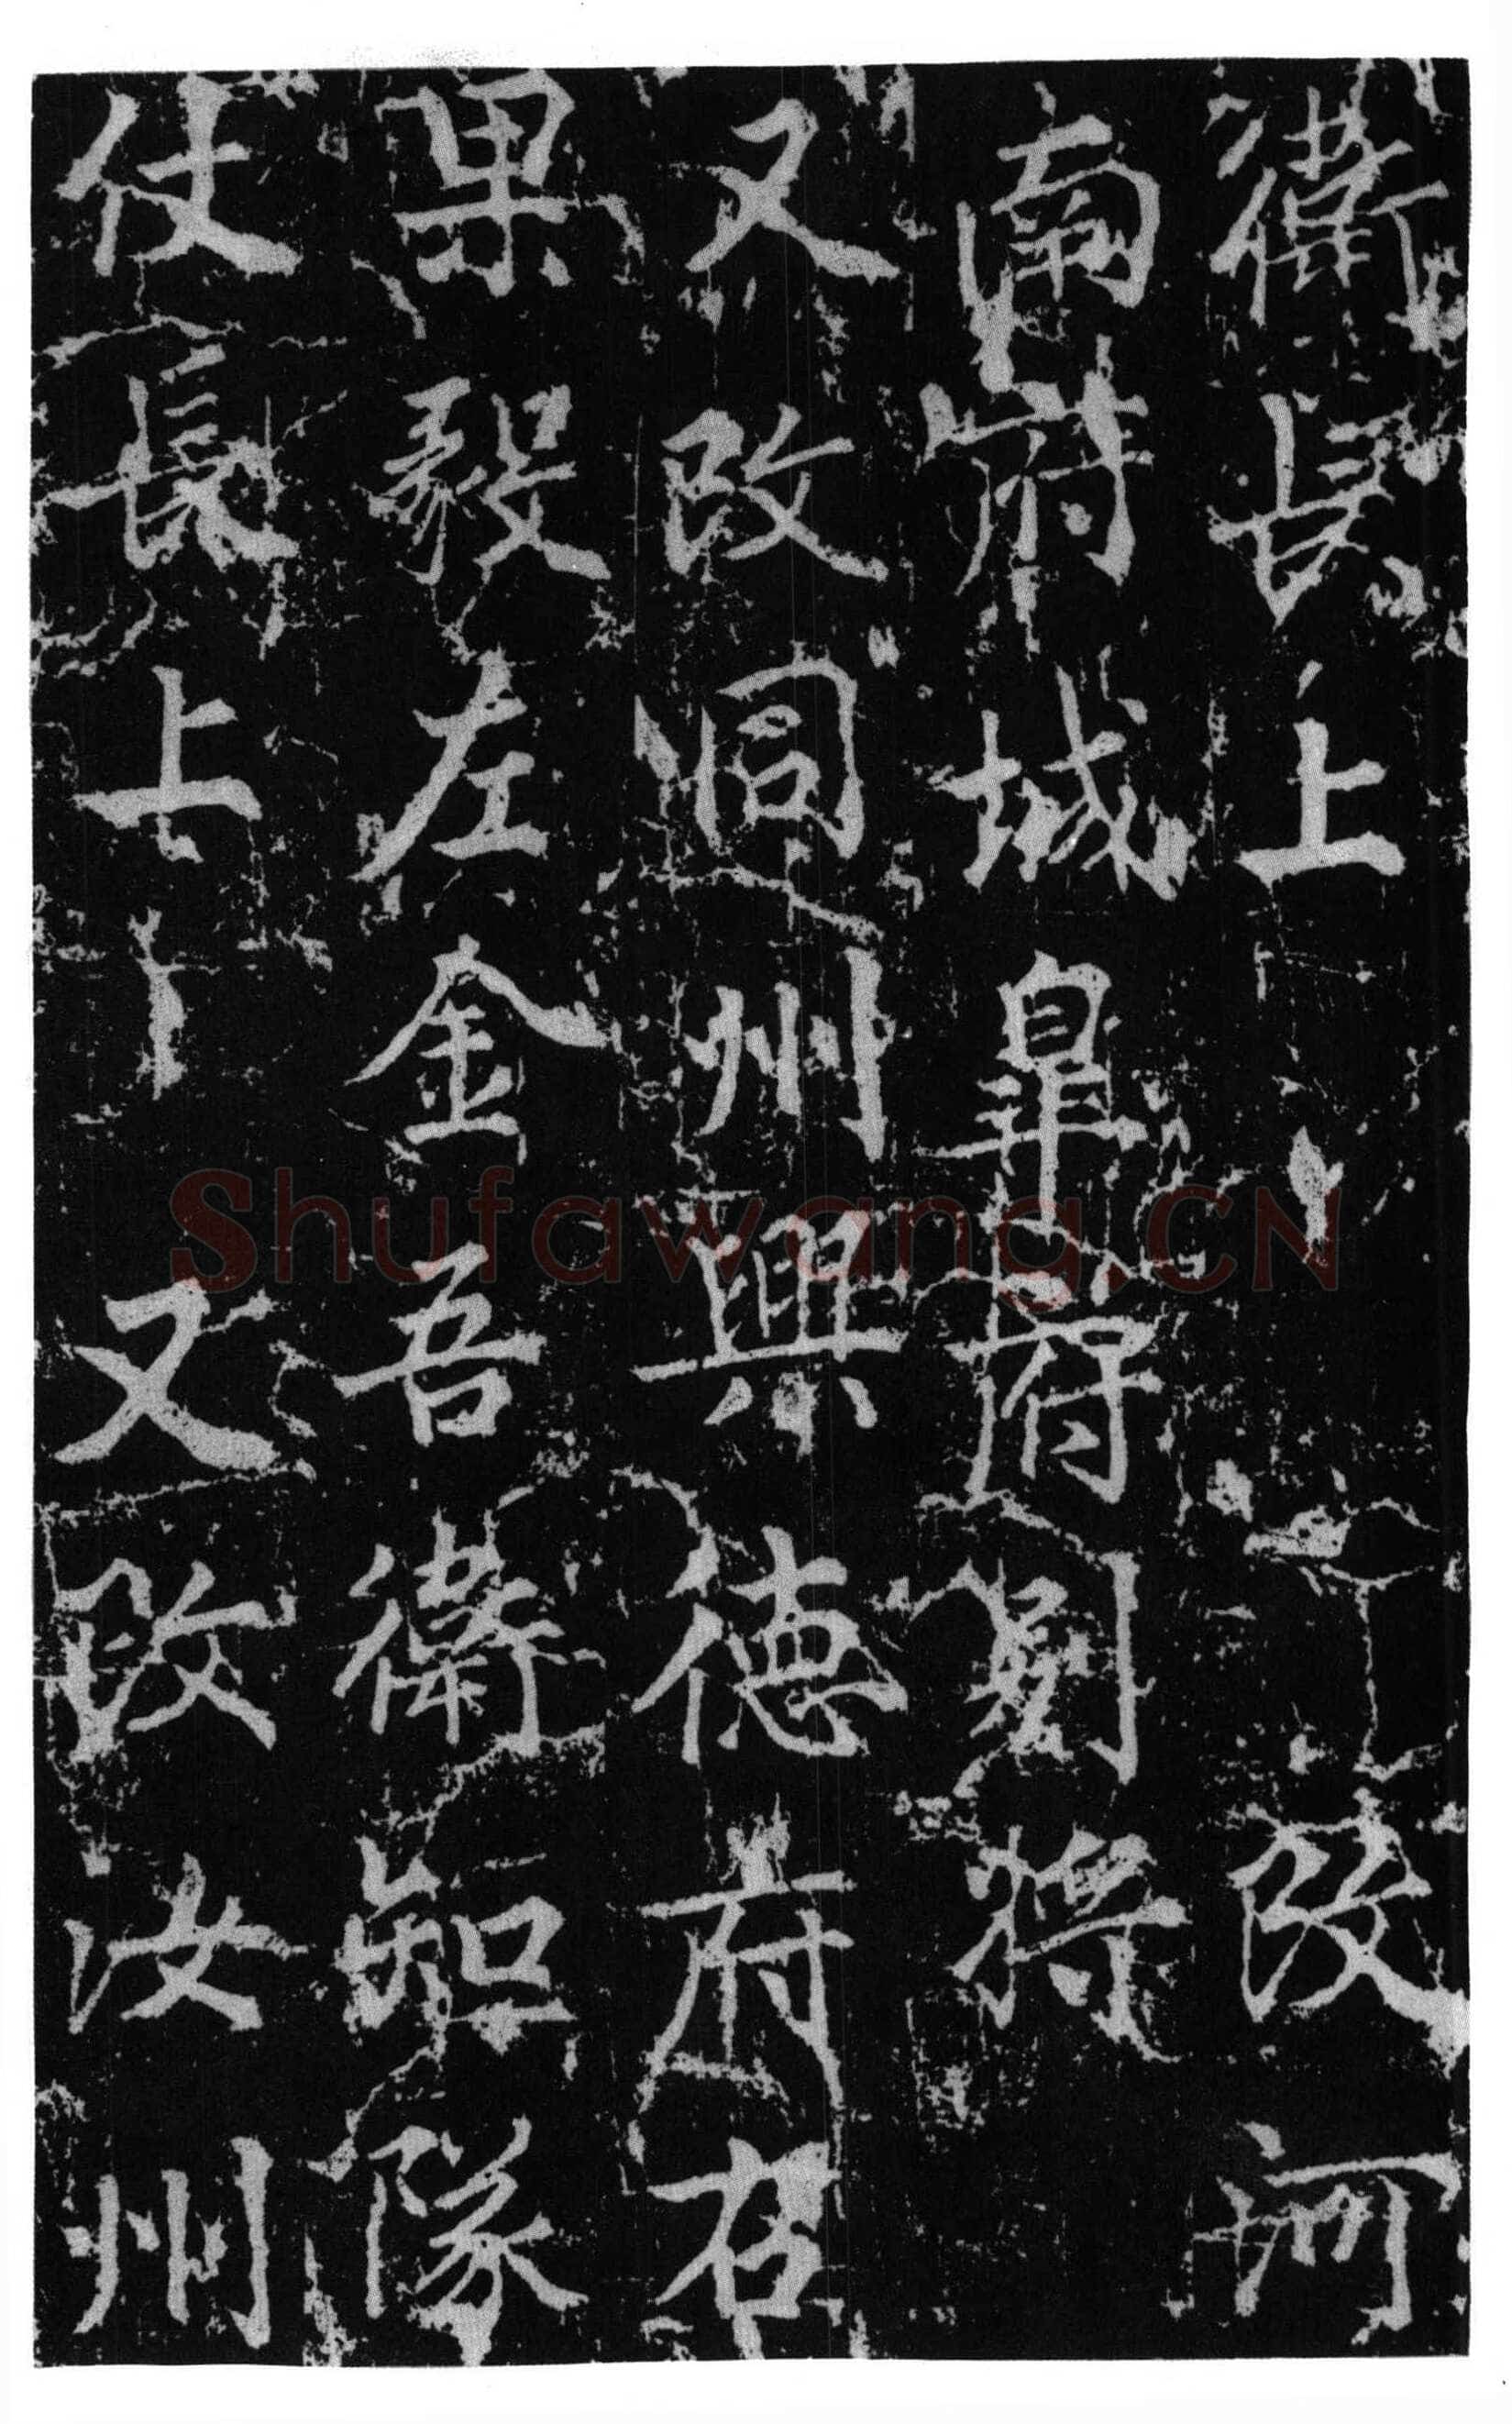 衛長上改河
南府城皋府別將
又改同州興德府左
果毅左金吾衛知隊
仗長上又改汝州
Shufawang.CN